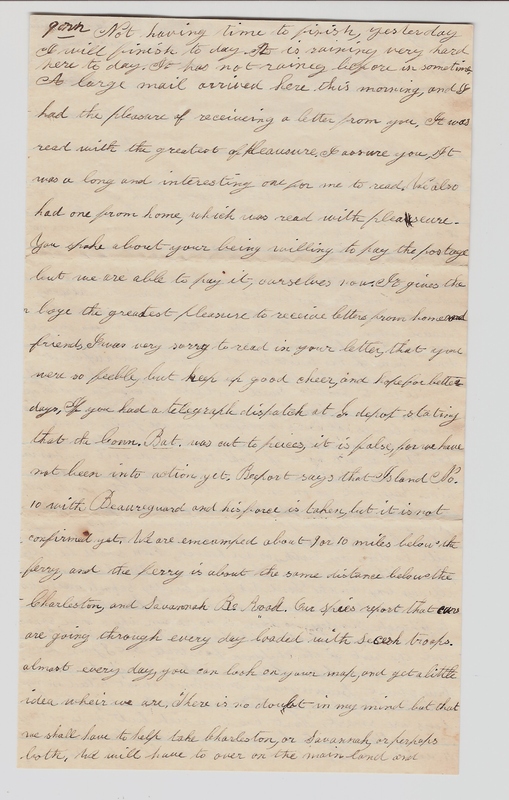 Not having time to finish, yesterday
I will finish to day. It is raining very hard
here to day. It has not rained before in sometime
A large mail arrived here this morning, and I
had the pleasure of receiveing a letter from you, It was
read with the greatest of pleausure, I assure you, It
was a long and interesting one for me to read, We also
had one from home, which was read with pleaseure.
You spoke about your being willing to pay the postage
but we are able to pay it, ourselves now. It gives the
boye the greatest pleasure to receive letters from home and
friends, I was very sorry to read in your letter, that you
were so feeble, but keep up good cheer, and hope for better
days, If you had a telegraph dispatch at depot stating
that the Conn. Bat. was cut to pieces, it is false, for we have
not been into action yet. Report says that Island No.
10 with Beaureguard and his force is taken, but it is not
confirmed yet. We are emcamped about 9 or 10 miles below the
ferry, and the ferry is about the same distance below the
Charleston, and Savannah Re Road. Our spies report that cars
are going through every day loaded with secesh troops.
almost every day, you can look on your map, and get a little
idea wheir we are, There is no doubt in my mind but that
we shall have to help take Charleston, or Savannah, or perhaps
both, We will have to over on the main land and